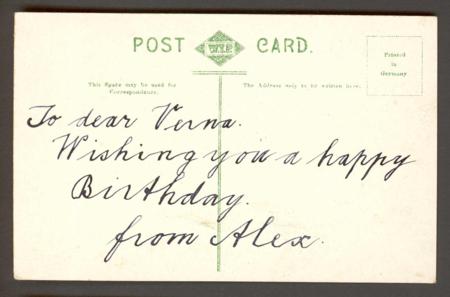 POST W.I.P. CARD.
Printed
in
Germany
This Space may be used for
Correspondence.
The Address only to be written here.
To dear Verna.
Wishing you a happy
Birthday.
from Alex.